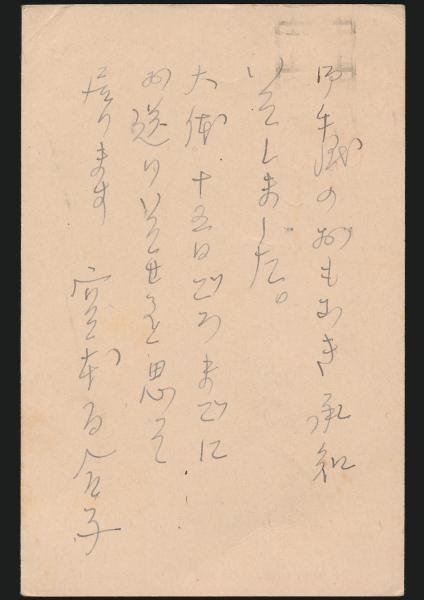 御手紙のおもむき承知
いたしました。
大体十五日ごろまでに
お送りいたせると思って
居ります 宮本百合子